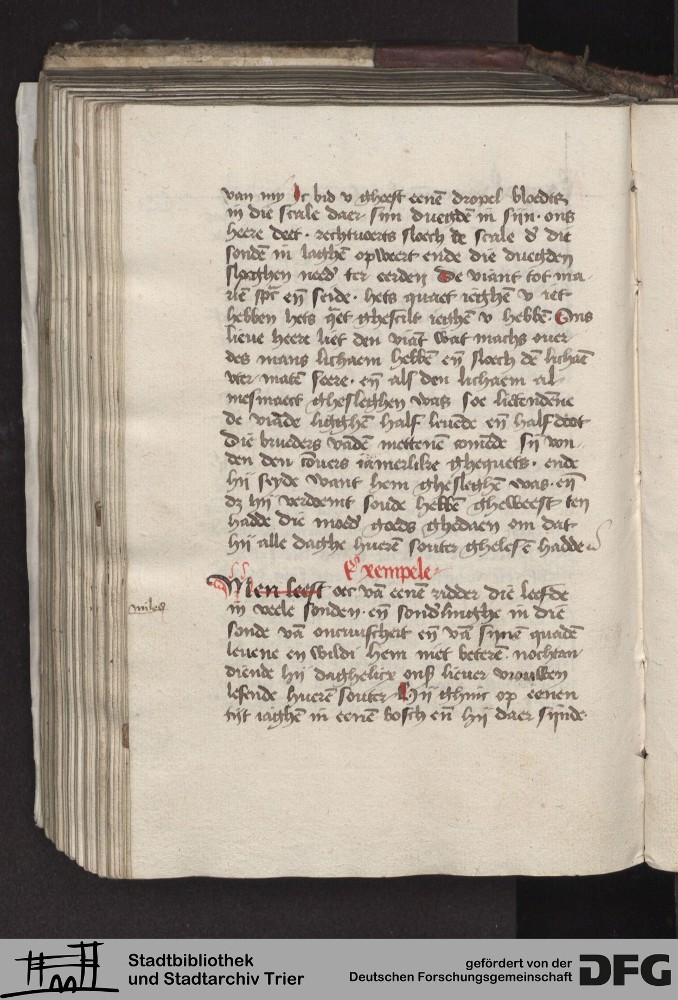 van my Ic bid v gheest eenē dropel bloedts
in die scale daer sijn duegdē in sijn. ons
heere deet. rechtuoerts sloech de scale d' die
sondē in laghē opweert ende die duegden
sloeghen need' ter eerden De viant tot ma-
riē spc̄ en̄ seide. hets quaet ieghē v iet
hebben hets q̄et ghescilt ieghē v hebbē. Ons
lieue heere liet den viāt wat machs ouer
des mans lichaem hebbē en̄ sloech dē lichāē
vter matē seere. en̄ als den lichaem al
mesmaect ghesleghen was soe lietendene
de viāde ligghē half leuēde en̄ half doot
Die brueders vādē mettenē comēde sij von-
den den cōuers iāmerlike ghequets. ende
hij seyde want hem ghesleghē was. en̄
dz hij verdoemt soude hebbē gheweest ten
hadde die moed' goeds ghedaen om dat
hij alle daghe huerē souter ghelesē hadde
Exempele
Men leest oec vā eenē ridder die leefde
miles
in veele sonden. en̄ sond'linghe in die
sonde vā oncuuscheit en̄ vā sijnē quadē
leuene en wildi hem niet beterē. nochtan
diende hij daghelicx onser lieuer vrouwen
lesende huerē souter Hij ghinc op eenen
tijt iaghē in eenē bosch en̄ hij daer sijnde
Stadtbibliothek
und Stadtarchiv Trier
gefördert von der
Deutschen Forschungsgemeinschaft
DFG